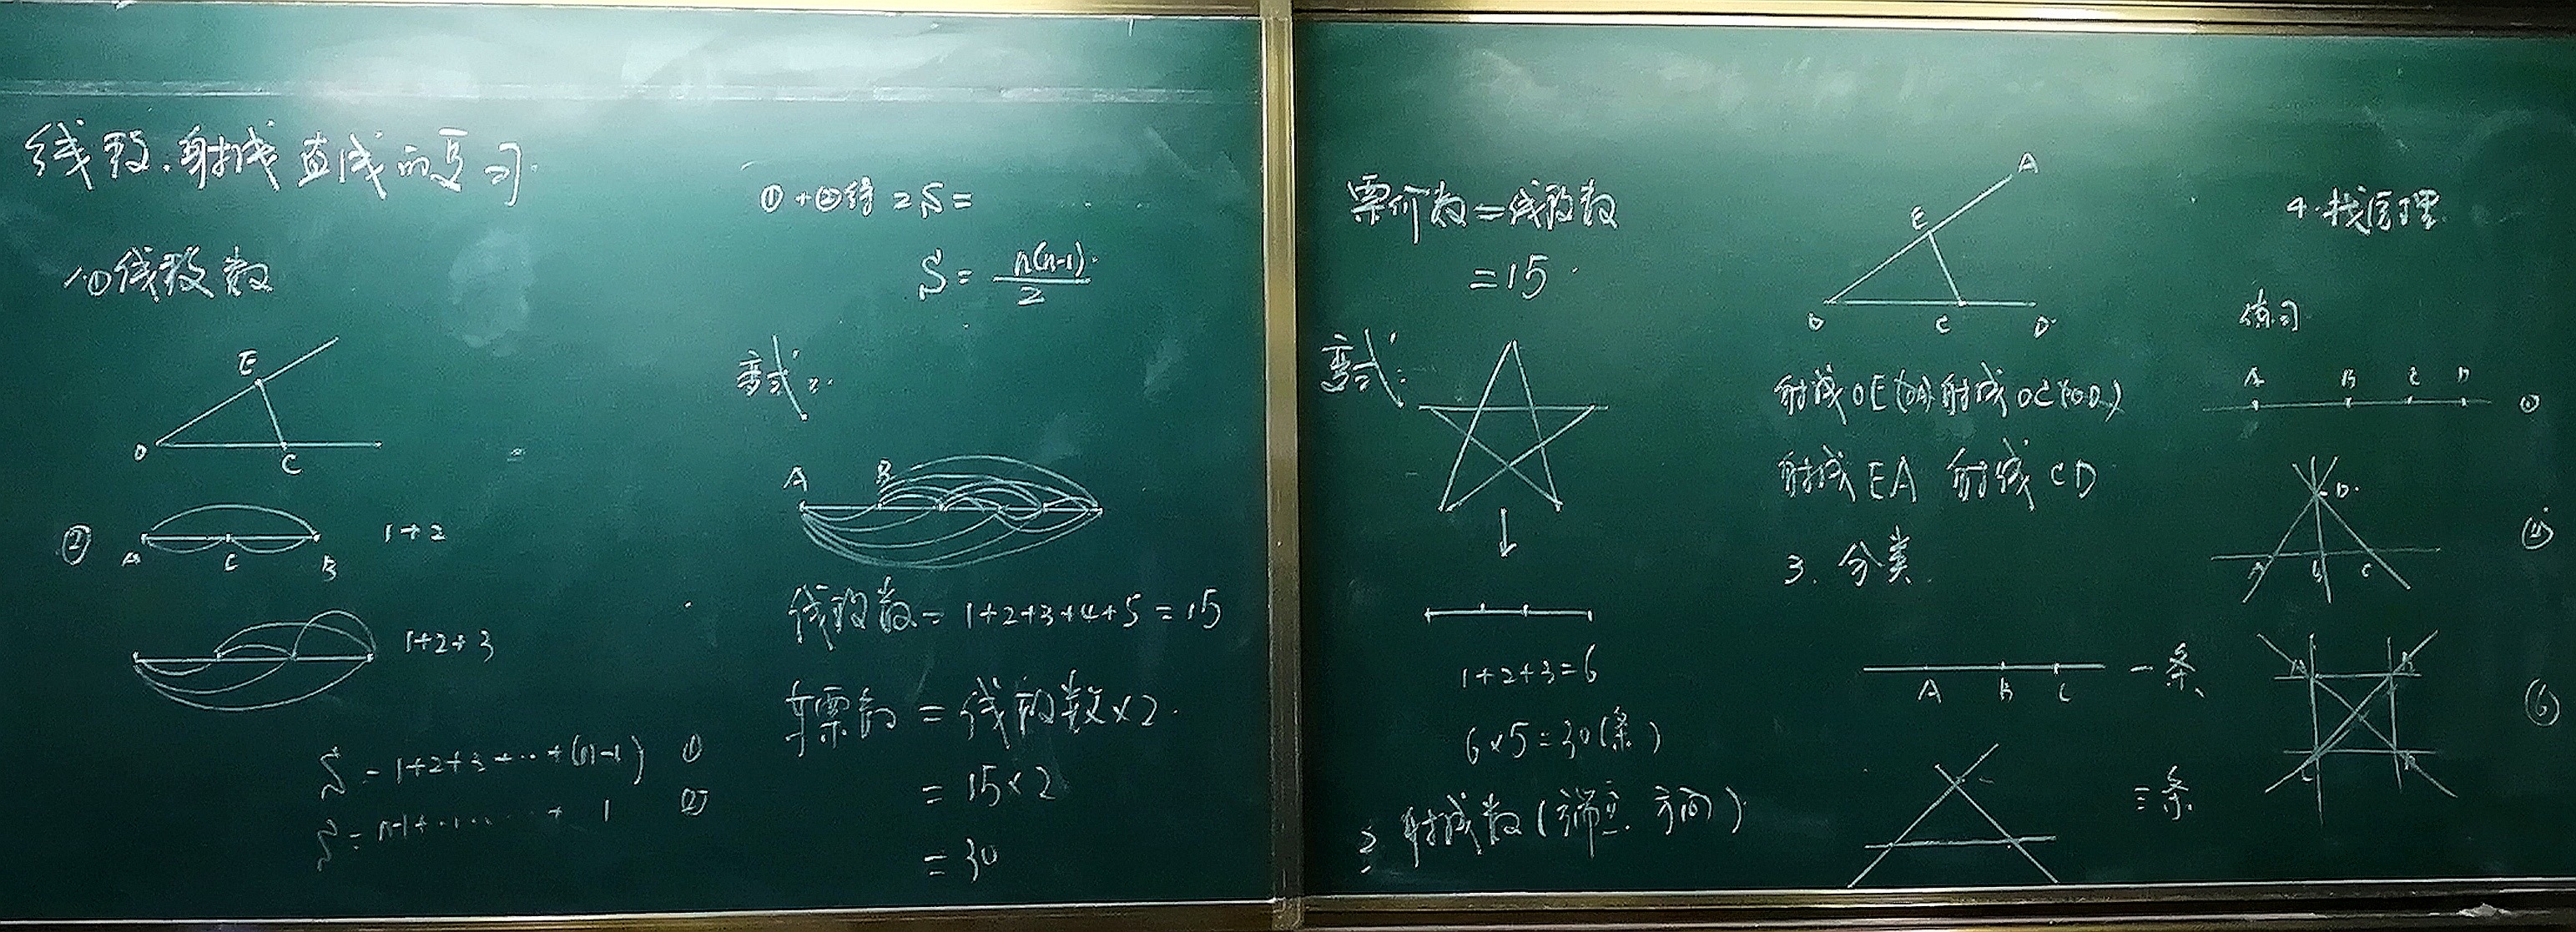 线段.射线直线的复习.
1.①线段数
E
O
C
②
A
C
B
1+2
1+2+3
S=1+2+3+...+(n-1) ①
S=n-1+......+1 ②
①+②得 2S=
S=n(n-1)/2
变式:
A
B
线段数=1+2+3+4+5=15
车票数=线段数×2.
=15×2
=30
票价数=线段数
=15
变式:
1+2+3=6
6×5=30(条)
2 射线数(端点.方向)
A
E
O
C
D
射线OE(OA)射线OC(OD)
射线EA 射线CD
3. 分类.
A
B
C
一条
三条
4.找原理
练习
A
B
C
D
①
D.
A
B
C
④
A
B
C
D
⑥